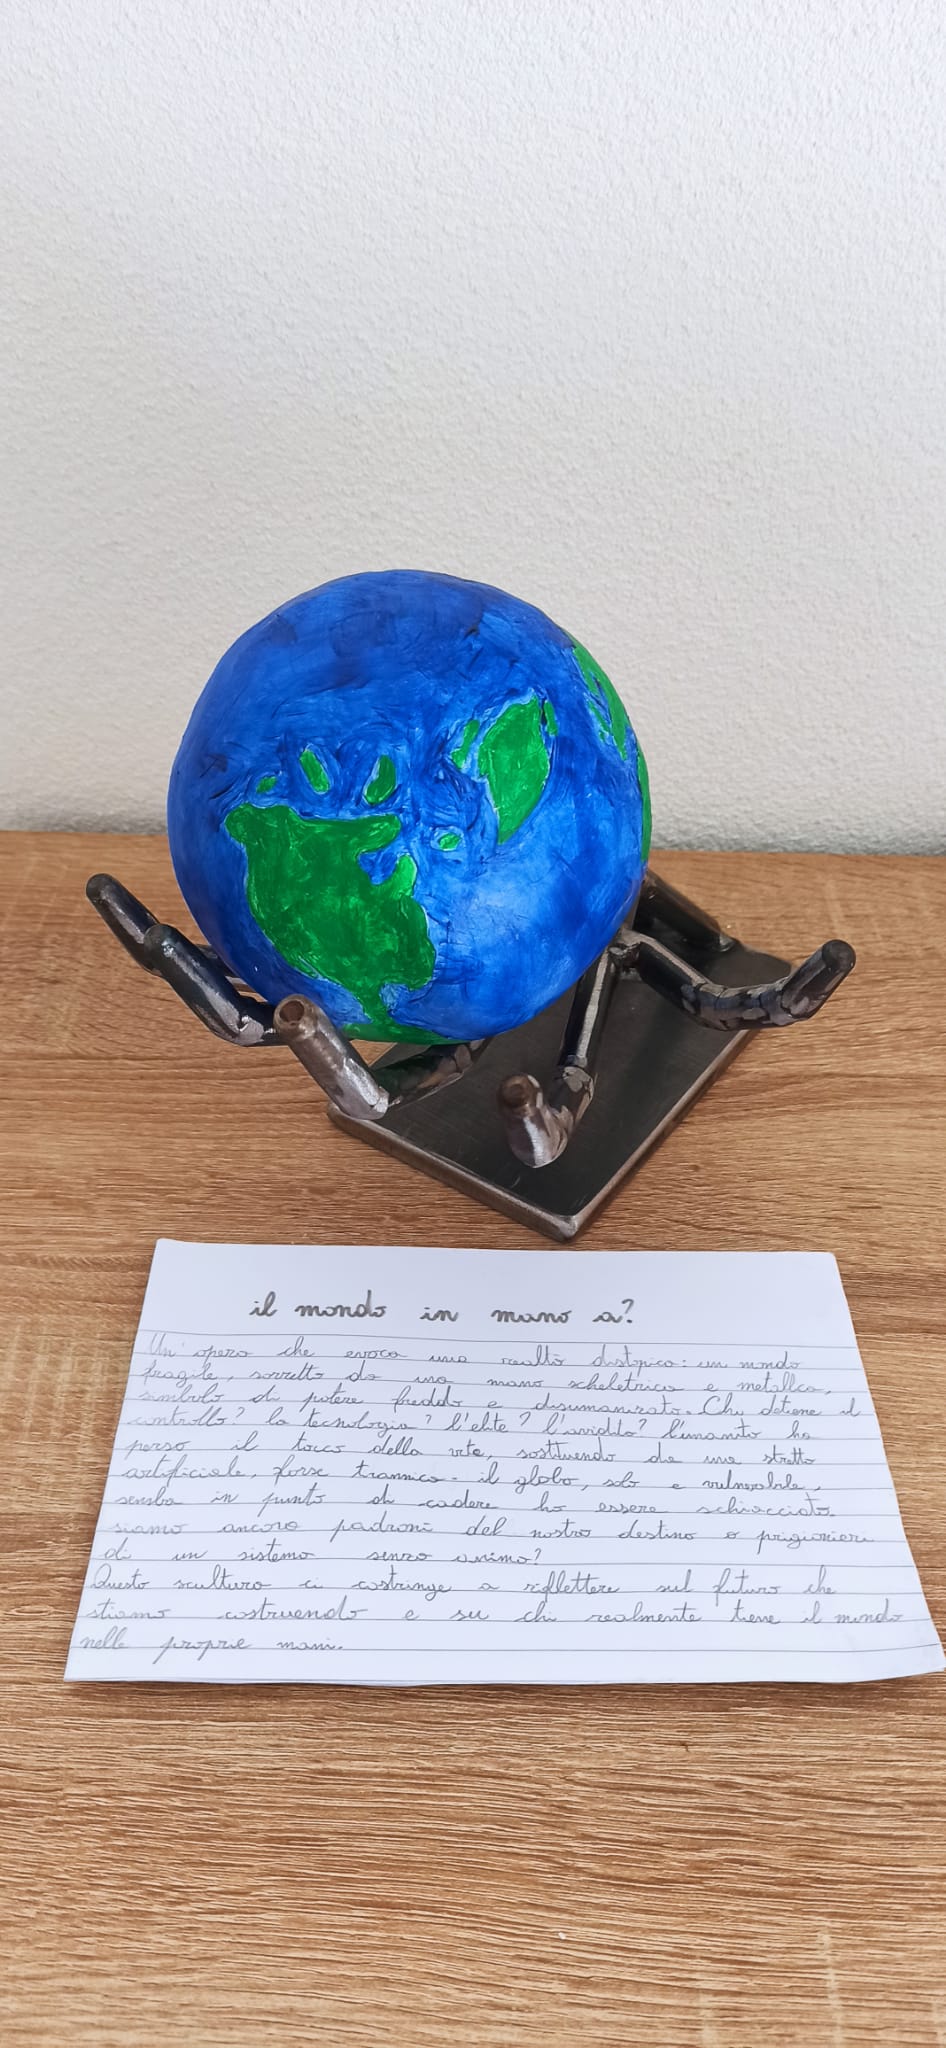 il mondo in mano a?
Un'opera che evoca una realtà distopica: un mondo
fragile, sorretto da una mano scheletrica e metallica,
simbolo di potere freddo e disumanizzato. Chi detiene il
controllo? la tecnologia? l'elite? l'avidità? l'umanità ha
perso il tocco della vita, sostituendo da una stretta
artificiale, forse tirannica. il globo, solo e vulnerabile,
semba in punto di cadere ho essere schiacciato.
siamo ancora padroni del nostro destino o prigionieri
di un sistema senza anima?
Questa scultura ci costringe a riflettere sul futuro che
stiamo costruendo e su chi realmente tiene il mondo
nelle proprie mani.